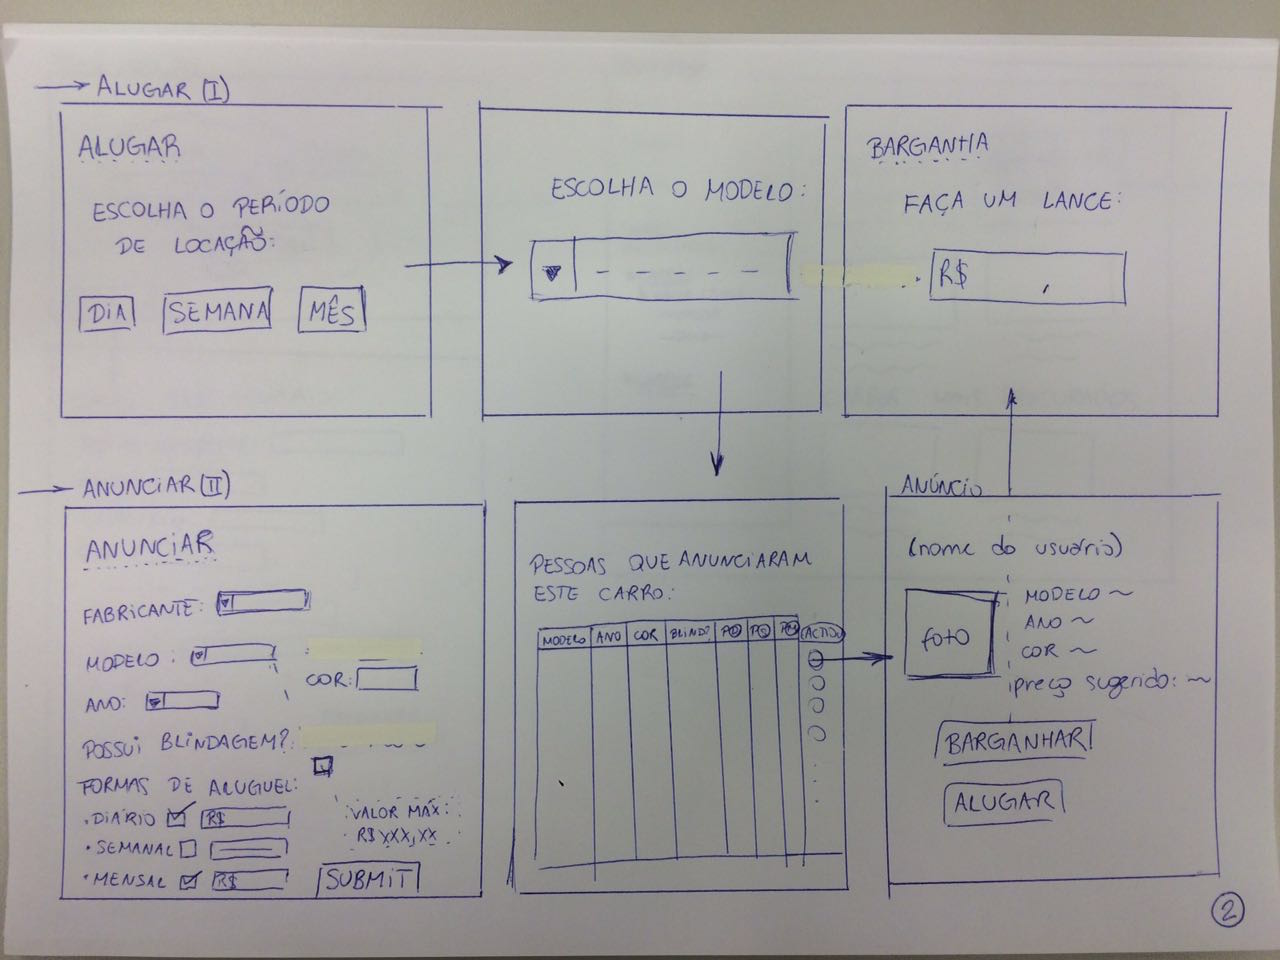 → ALUGAR (I)
ALUGAR
ESCOLHA O PERÍODO
DE LOCAÇÃO:
DIA SEMANA MÊS
ESCOLHA O MODELO:
BARGANHA
FAÇA UM LANCE:
R$ ,
→ ANUNCIAR (II)
ANUNCIAR
FABRICANTE:
MODELO:
COR:
ANO:
POSSUI BLINDAGEM?
FORMAS DE ALUGUEL:
• DIÁRIO R$
• SEMANAL
• MENSAL R$
VALOR MÁX:
R$ XXX,XX
SUBMIT
PESSOAS QUE ANUNCIARAM
ESTE CARRO:
MODELO ANO COR BLIND?
ANÚNCIO
(nome do usuário)
FOTO
MODELO ~
ANO ~
COR ~
preço sugerido: ~
BARGANHAR
ALUGAR
2